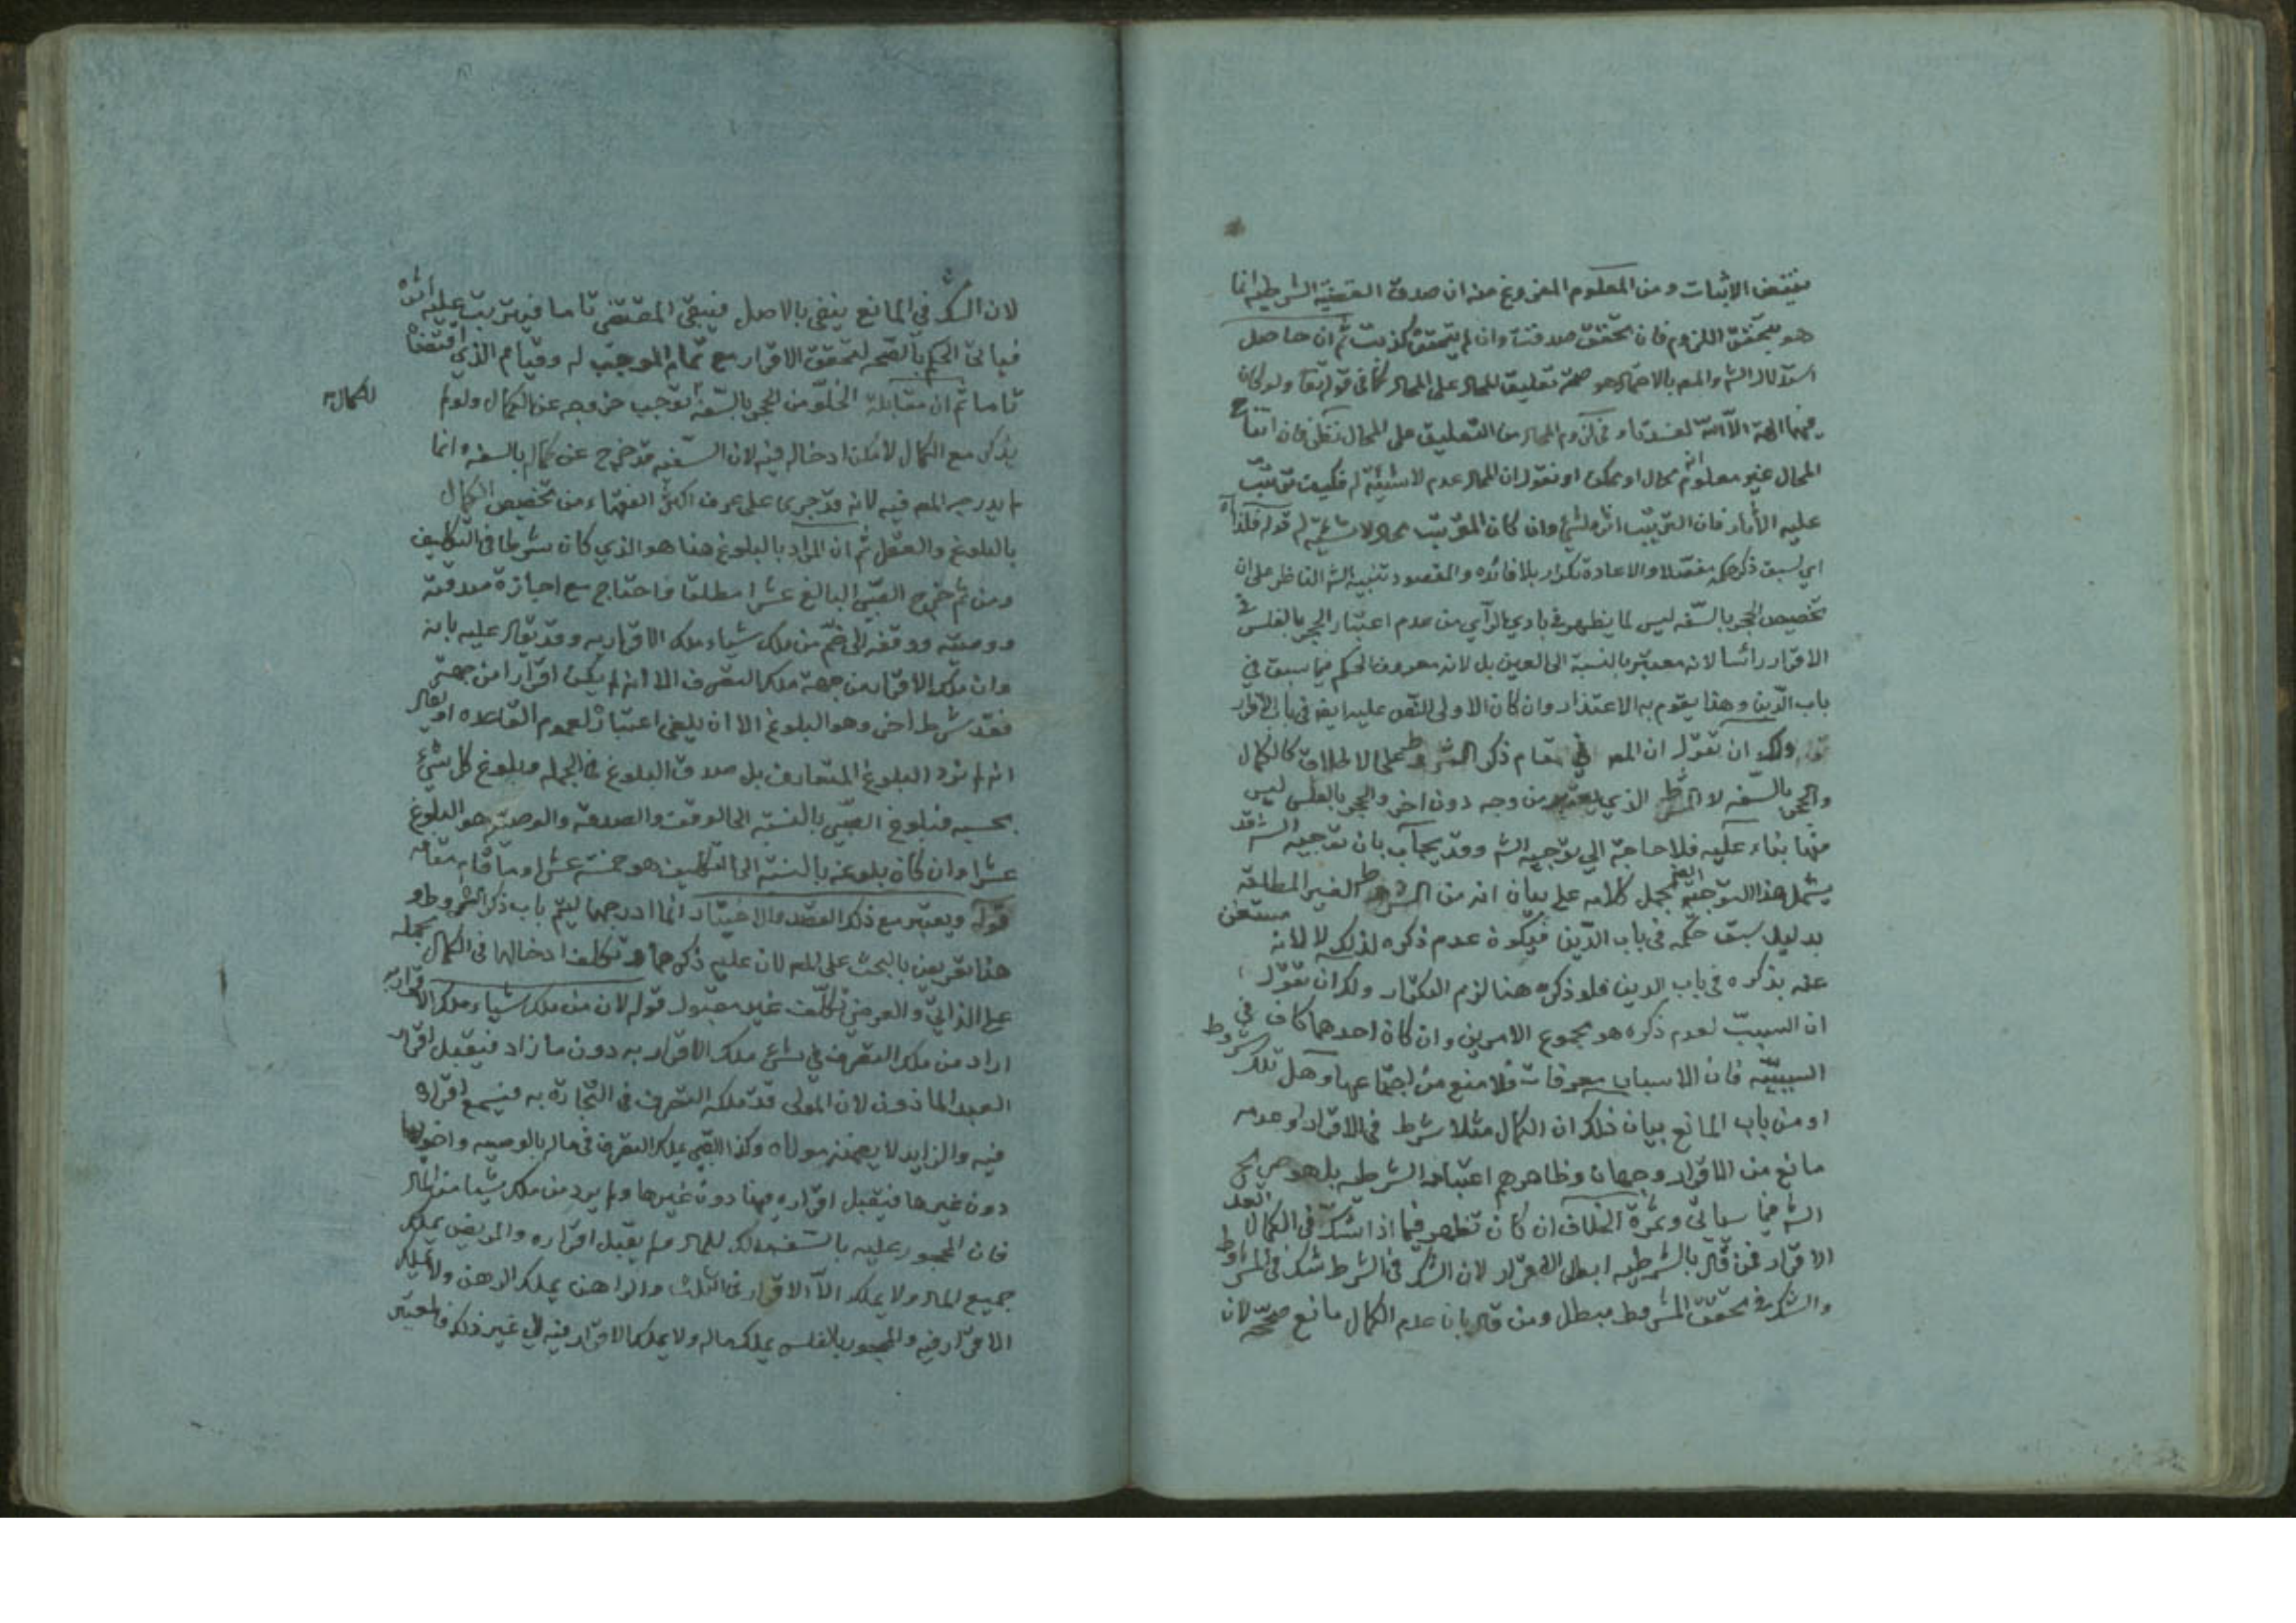 الاثبات ومن المعلوم المفروغ منه ان صدق القضية الشرطيه انما
هو بتحقق اللزوم فان تحقق صدقت وان لم يتحقق كذبت ثم ان حاصل
استدلال الش والمص بالاحتمال هو صحة تعليق المحال على المحال كما في قوله تعا ولو كان
فيهما الهة الا الله لفسدتا و المحال من التعليق على المحال نظر فان
المحال غير معلوم انه محال او ممكن او نقول ان المحال عدم لا شيئية له فكيف ترتب
عليه الآثار فان الترتيب اثر لشئ وان كان المرتب عدم لا شيئية له قوله فلذا
اي لسبق ذكر حكمه مفصلا والاعادة تكرار بلا فائده والمقصود تنبيه الش الناظر على ان
تخصيص الحجر بالسفه ليس لما يظهر في بادي الرأي من عدم اعتبار الحجر بالفلس في
الاقرار رأسا لانه معتبر بالنسبة الى العين بل لانه معروف الحكم فيما سبق في
باب الدين وهذا يقوم به الاعتذار وان كان الاولى النص عليه ايضا في باب الاقرار
ولك ان تقول ان المص في مقام ذكر الشروط على الاطلاق كالكمال
والحجر بالسفه لا الشرط الذي يعتبر من وجه دون اخر والحجر بالفلس ليس
منها بناء عليه فلا حاجة الى توجيه الش وقد يجاب بان توجيه الش قد
يشمل هذا التوجيه ايضا بحمل كلامه على بيان انه من الشروط الغير المطلقة
بدليل سبق حكمه في باب الدين فيكون عدم ذكره لذلك لا لانه مستغن
عنه بذكره في باب الدين فلو ذكره هنا لزم التكرار ولك ان تقول
ان السبب لعدم ذكره هو مجموع الامرين وان كان احدهما كاف في
السببيه فان الاسباب معرفات فلا منع من اجتماعها وهل تلك شروط
او من باب المانع بيان ذلك ان الكمال مثلا شرط في الاقرار او عدمه
مانع من الاقرار وجهان وظاهرهم اعتبار الشرطيه بل هو صريح
الش فيما سيأتي وثمرة الخلاف ان كان تظهر فيما اذا شك في الكمال بعد
الاقرار فمن قال بالشرطيه ابطل الاقرار لان الشك في الشرط شك في المشروط
والشك في تحقق المشروط مبطل ومن قال بان عدم الكمال مانع صححه لان
لان الشك في المانع ينفى بالاصل فيبقى المقتضى تاما فيترتب عليه اثره
فيأتي الحكم بالصحه لتحقق الاقرار مع تمام الموجب له وقيام الذي اقتضاه
تاما ثم ان مقابلة الخلو من الحجر بالسفه توجب خروجه عن الكمال ولو لم
للكمال
يذكر مع الكمال لامكن ادخاله فيه لان السفيه قد خرج عن كماله بالسفه وانما
لم يدرجه المص فيه لانه قد جرى على عرف اكثر الفقهاء من تخصيص الكمال
بالبلوغ والعقل ثم ان المراد بالبلوغ هنا هو الذي كان شرطا في التكليف
ومن ثم خرج الصبي البالغ عشرا مطلقا فاحتاج مع اجازة صدقته
ووصيته ووقفه الى ضم من ملك شياء ملك الاقرار به وقد يقال عليه بانه
وان ملك الاقرار من جهة ملك التصرف الا انه لم يكن اقرارا من جهة
فقد شرط اخر وهو البلوغ الا ان يلغى اعتباره لعموم القاعده او يقال
انه لم نرد البلوغ المتعارف بل صدق البلوغ في الجمله وبلوغ كل شيء
بحسبه فبلوغ الصبي بالنسبة الى الوقف والصدقه والوصيه هو البلوغ
عشرا وان كان بلوغه بالنسبة الى التكليف هو خمسة عشر او ما قام مقامه
قوله ويعتبر مع ذلك القصد والاختيار انما ادرجهما ليتم باب ذكر الشروط او
هذا تعريض بالبحث على المص لان عليه ذكرهما وتكلف ادخالها في الكمال بحمله
على الذاتي والعرضي تكلف غير مقبول قوله لان من ملك شياء ملك الاقرار به
اراد من ملك التصرف في شئ ملك الاقرار به دون ما زاد فيقبل اقرار
العبد الماذون لان المولى قد ملكه التصرف في التجارة به فيسمع اقراره
فيه والزايد لا يضمنه مولاه وكذا الصبي يملك التصرف في ماله بالوصيه واخواتها
دون غيرها فيقبل اقراره فيها دون غيرها ولم يرد من ملك شيا من المال
فان المحجور عليه بالسفه مالك للمال ولم يقبل اقراره والمريض يملك
جميع المال ولا يملك الا الاقرار في الثلث والراهن يملك الرهن ولا يملك
الاقرار فيه والمحجور بالفلس يملك ماله ولا يملك الاقرار فيه الى غير ذلك فالمعتبر